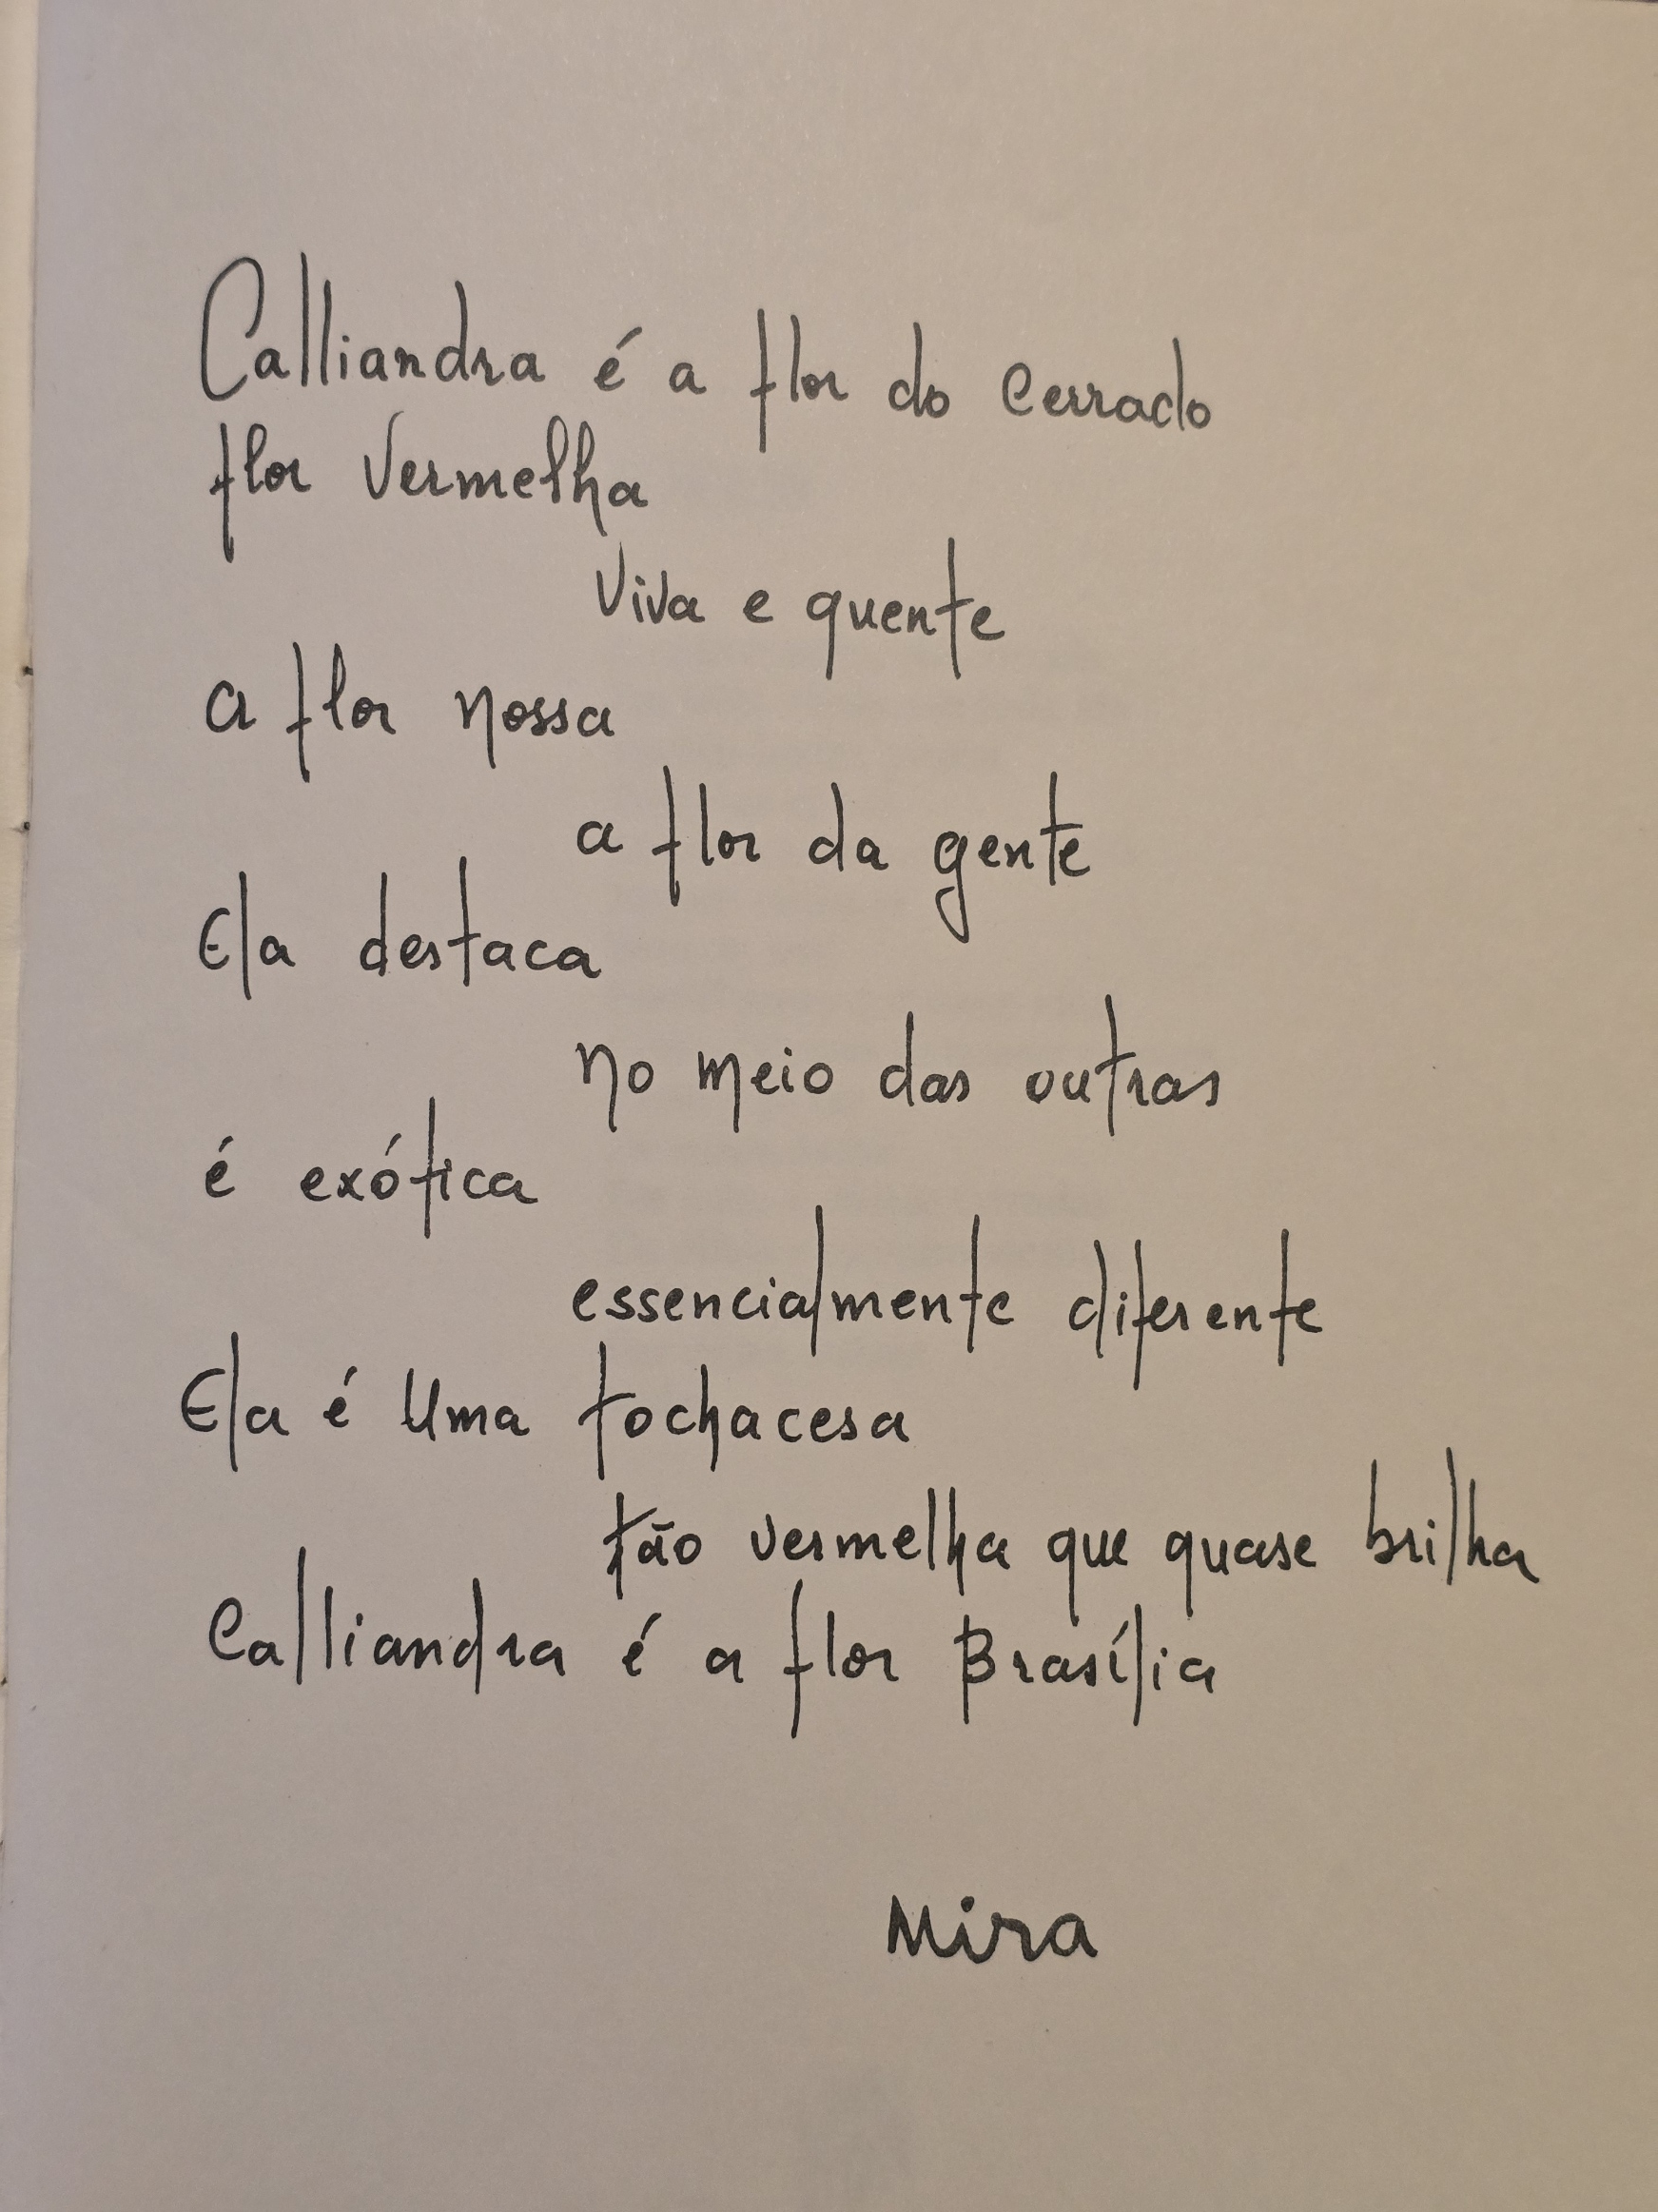 Calliandra é a flor do Cerrado
flor Vermelha
Viva e quente
a flor nossa
a flor da gente
Ela destaca
no meio das outras
é exótica
essencialmente diferente
Ela é Uma tochacesa
tão vermelha que quase brilha
Calliandra é a flor Brasília
Mira